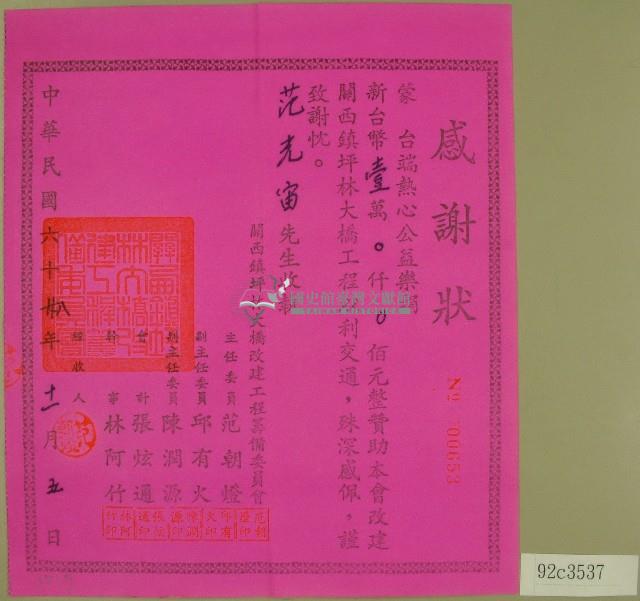 感謝狀
№ 00653
蒙 台端熱心公益樂捐
新台幣壹萬0仟0佰元整贊助本會改建
關西鎮坪林大橋工程以利交通，殊深感佩，謹
致謝忱。
范光宙先生收執
關西鎮坪林大橋改建工程籌備委員會
主任委員 范朝燈
副主任委員 邱有火
副主任委員 陳潤源
會計 張炫通
幹事 林阿竹
經收人
中華民國六十八年十一月五日
國史館臺灣文獻館
TAIWAN HISTORICA
92c3537